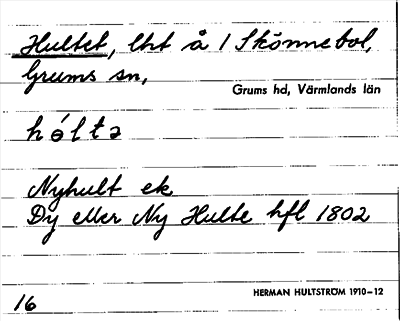 Hultet, lht å 1 Skönnebol,
Grums sn,
Grums hd, Värmlands län
hóltə
Nyhult ek
Dy eller Ny Hulte hfl 1802
HERMAN HULTSTRÖM 1910–12
16